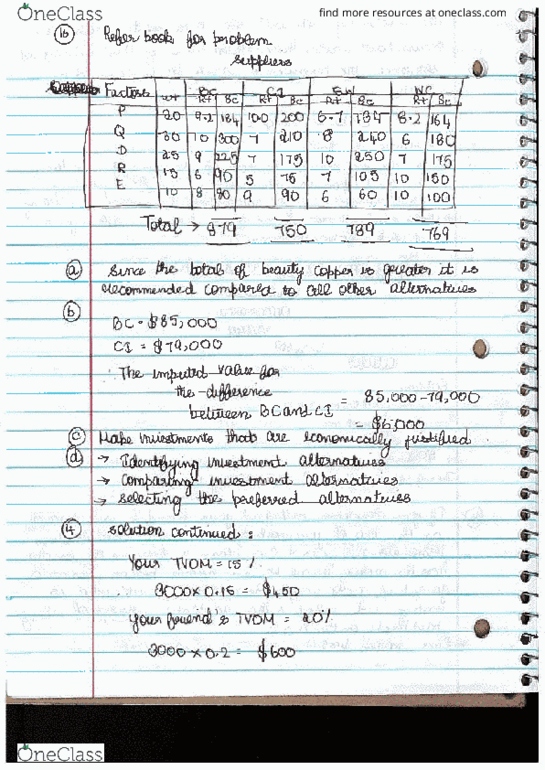 OneClass
find more resources at oneclass.com
16 Refer book for problem
suppliers
Factors BC CI EW WC
wt Rt Sc Rt Sc Rt Sc Rt Sc
P 20 9.2 184 100 200 8.7 184 8.2 164
Q 30 10 300 7 210 8 240 6 180
D 25 9 225 7 175 10 250 7 175
R 15 6 90 5 75 7 105 10 150
E 10 8 80 9 90 6 60 10 100
Total → 879 750 789 769
a Since the total of beauty copper is greater it is
recommended compared to all other alternatives
b BC = $85,000
CI = $79,000
The imputed value for
the difference
between BC and CI = 85,000 - 79,000
= $6,000
c Make investments that are economically justified.
d → Identifying investment alternatives
→ comparing investment alternatives
→ selecting the preferred alternatives
4 solution continued :
Your TVOM = 15 %
3000 x 0.15 = $450
Your friend's TVOM = 20%
3000 x 0.2 = $600
OneClass